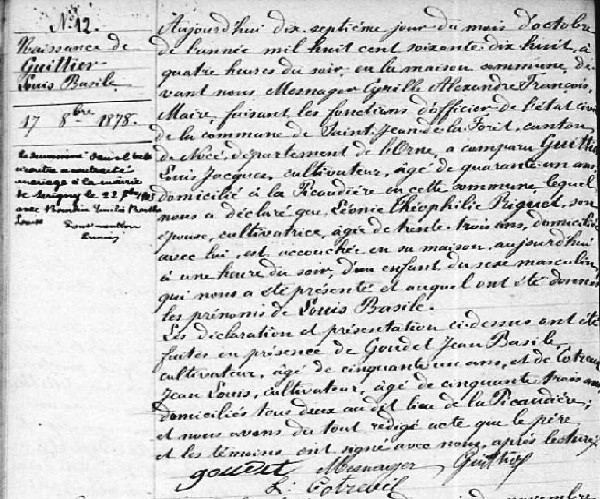 N° 12.
Naissance de
Guillier
Louis Basile.
17 8bre 1878.
mariage à la mairie
de le 22
avec
Pour mention
Aujourd'hui dix septième jour du mois d'octobre
de l'année mil huit cent soixante dix huit, à
quatre heures du soir, en la maison commune, de-
vant nous Mesnager Cyrille Alexandre François,
Maire, faisant les fonctions d'officier de l'état civil
de la commune de Saint Jean de la Forêt, canton
de Nocé, département de l'Orne, a comparu Guillier
Louis Jacques, cultivateur, âgé de quarante un ans,
domicilié à la Picaudière en cette commune, lequel
nous a déclaré que, Léonie Théophilie Pignet, son
épouse, cultivatrice, âgée de trente trois ans, domiciliée
avec lui, est accouchée en sa maison, aujourd'hui
à une heure du soir, d'un enfant du sexe masculin,
qui nous a été présenté et auquel ont été donnés
les prénoms de Louis Basile.
Les déclaration et présentation ci-dessus ont été
faites en présence de Goudet Jean Basile,
cultivateur, âgé de cinquante un ans, et de Cotreuil
Jean Louis, cultivateur, âgé de cinquante trois ans
domiciliés tous deux au dit lieu de la Picaudière;
et nous avons du tout rédigé acte que le père
et les témoins ont signé avec nous, après lecture.
goudet Mesnager Guillier
L Cotreuil